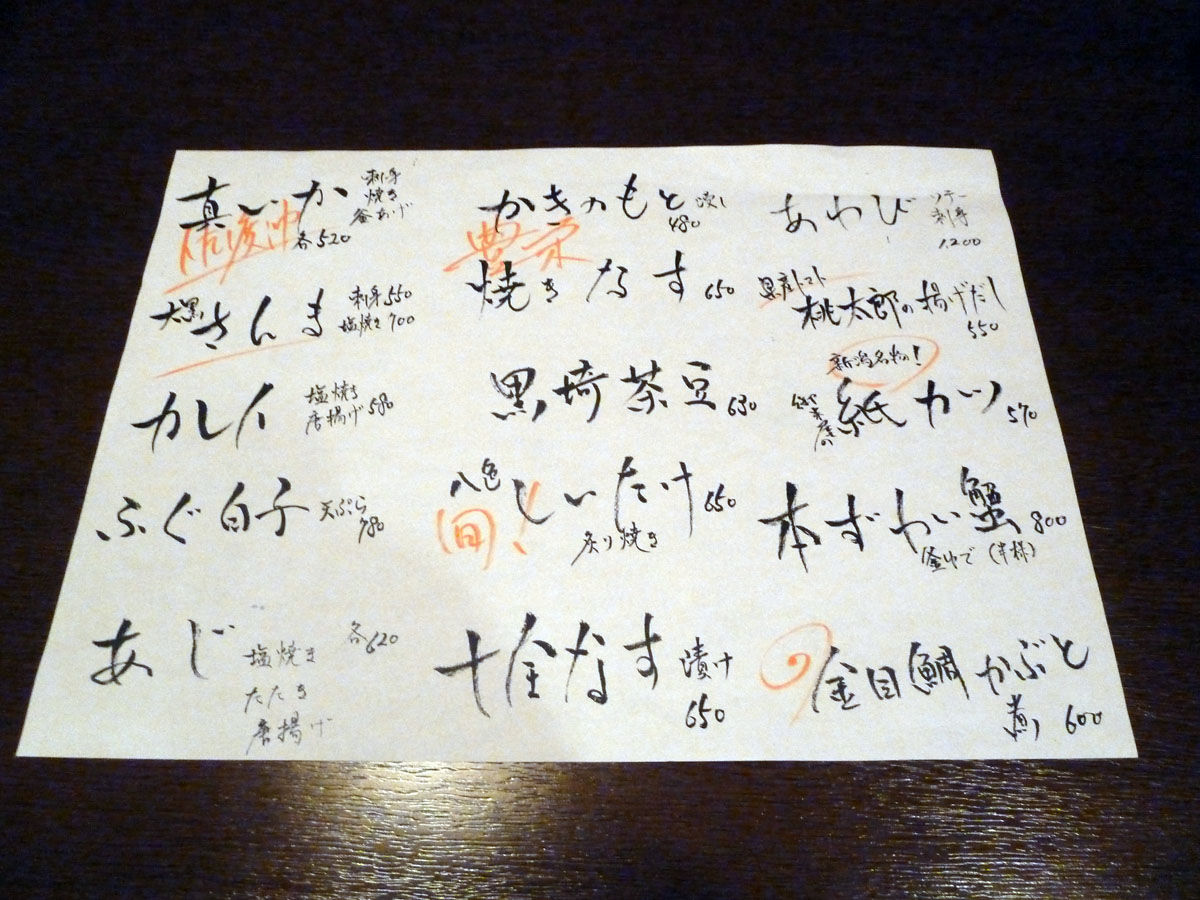 真いか
刺身
焼き
釜あげ
各520
佐渡沖
大黒さんま
刺身550
塩焼き700
カレイ
塩焼き
唐揚げ580
ふぐ白子
天ぷら
780
あじ
塩焼き
たたき
唐揚げ
各620
かきのもと
浸し
480
豊栄
焼きなす650
黒埼茶豆630
八色しいたけ650
旬!
炙り焼き
十全なす
漬け
650
あわび
ソテー
刺身
1,200
県産トマト
桃太郎の揚げだし
550
新潟名物!
紙カツ
570
本ずわい蟹800
釜ゆで(半様)
金目鯛かぶと
煮
600